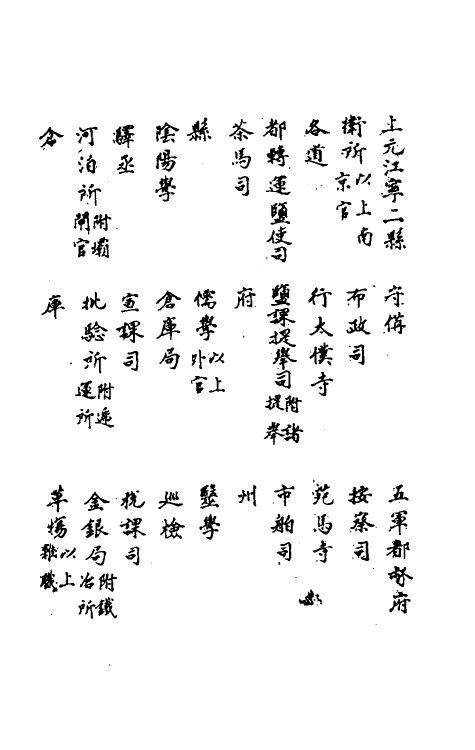 上元江寧二縣　守備　五軍都督府
衛所以上南京官　布政司　按察司
各道　行太僕寺　苑馬寺
都轉運鹽使司　鹽課提舉司附諸提舉　市舶司
茶馬司　府　州
縣　儒學以上外官　毉學
陰陽學　倉庫局　巡檢
驛丞　宣課司　稅課司
河泊所附壩閘官　批驗所附遞運所　金銀局附鐵冶所
倉　庫　草場以上雜職